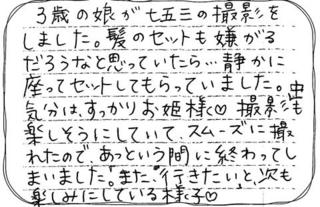 3歳の娘が七五三の撮影を
しました。髪のセットも嫌がる
だろうなと思っていたら…静かに
座ってセットしてもらっていました。
気分は、すっかりお姫様♡ 撮影中も
楽しそうにしていて、スムーズに撮
れたので、あっという間に終わってし
まいました。"また、行きたい"と、次も
楽しみにしている様子♡